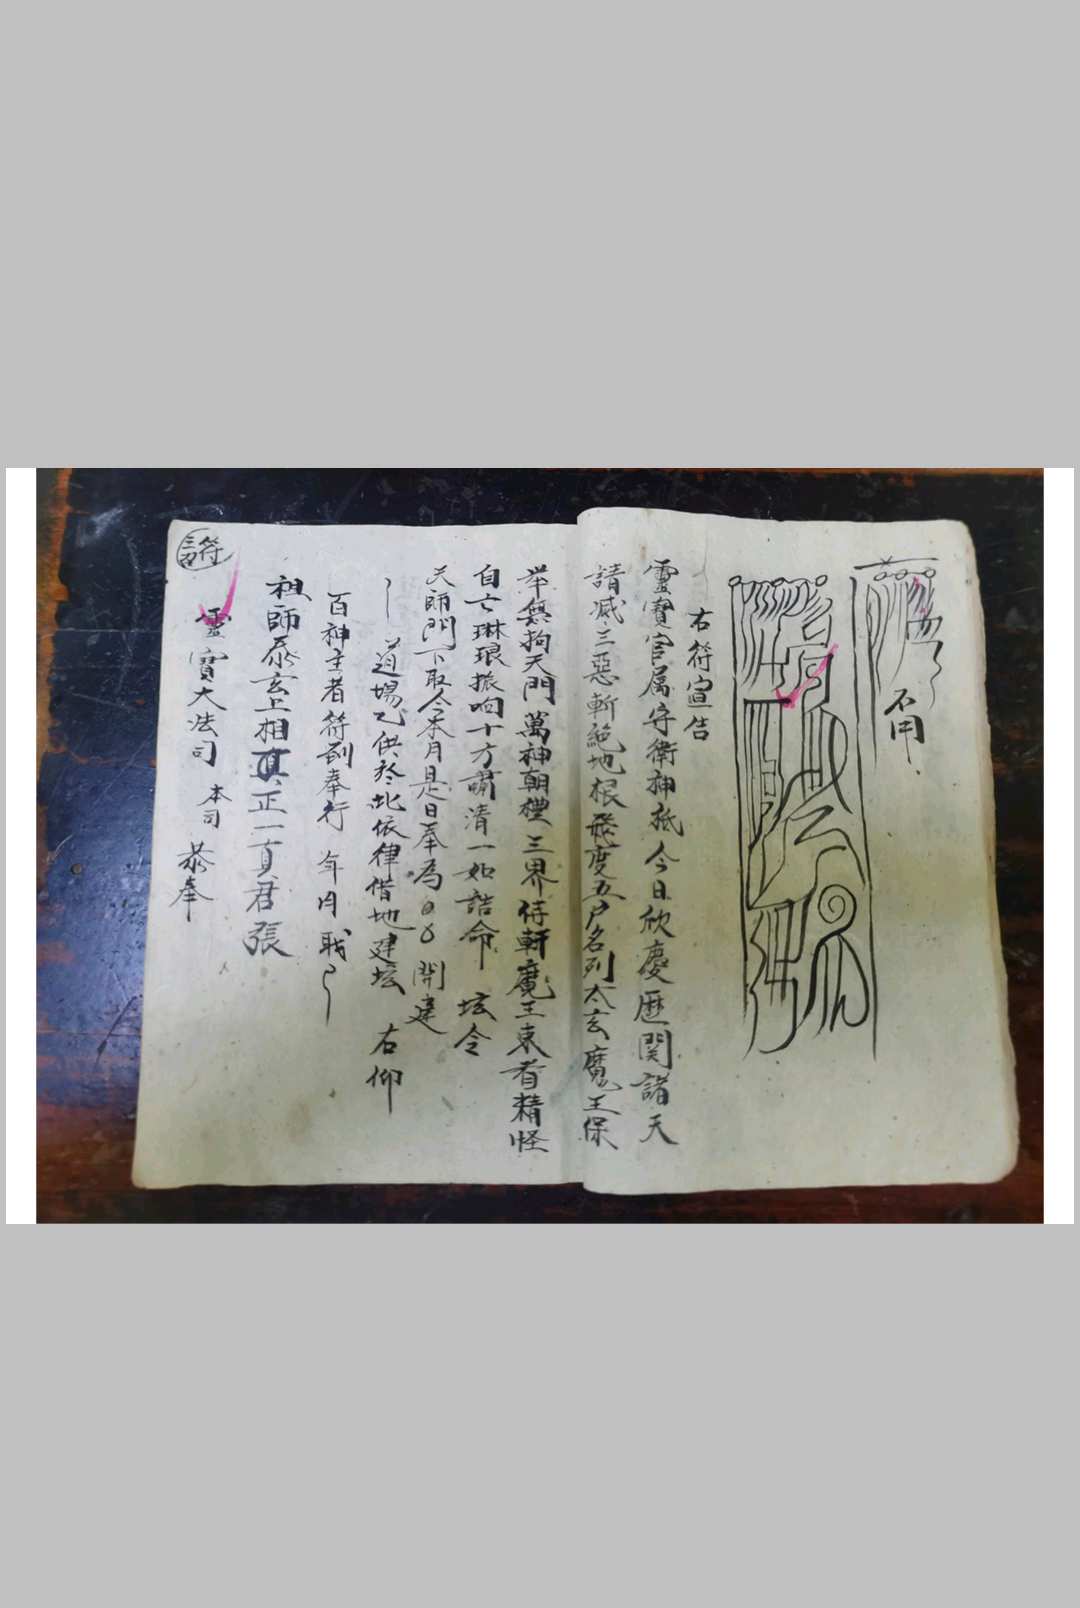 不用
右符宣告
靈寶官属守衛神祇今日欣慶歴関諸天
請滅三惡斬絶地根飛度五户名列太玄魔王保
举無拘天門萬神朝禮三界侍軒魔王束首精怪
自亡琳琅振响十方肅清一如誥命 坛令
天師門下取今本月是日奉為 開建
道場乙供於此依律借地建坛 右仰
百神主者符到奉行 年月
祖師泰玄上相真正一真君張
靈寶大法司 本司 恭奉
符